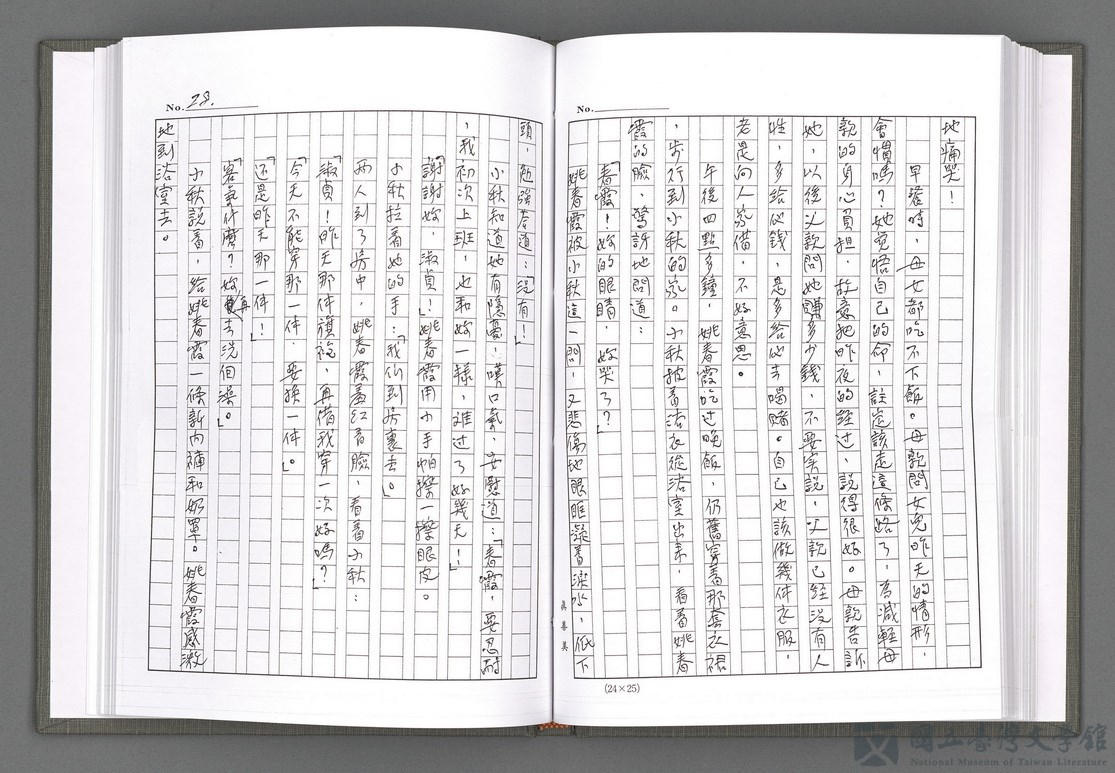 No.
地痛哭！
早餐時，母女都吃不下飯。母親問女兒昨天的情形，
會慣嗎？她覚悟自己的命，註定該走這條路了，為減輕母
親的身心負担，故意把昨夜的経过，説得很好。母親告訴
她，以後父親問她賺多少錢，不要実説，父親已経没有人
性，多給他錢，是多給他去喝賭。自己也該做幾件衣服，
老是向人家借，不好意思。
午後四點多鐘，姚春霞吃过晚飯，仍舊穿着那套衣裙
，步行到小秋的家。小秋披着浴衣從浴室出来，看着姚春
霞的臉，驚訝地問道：
「春霞！妳的眼睛，妳哭了？」
姚春霞被小秋這一問，又悲傷地眼眶凝着淚水，低下
真善美
(24×25)
No. 28.
頭，勉強答道：「没有！」
小秋知道她有隱憂，嘆口氣，安慰道：「春霞，要忍耐
，我初次上班，也和妳一樣，难过了好幾天！」
「謝謝妳，淑貞！」姚春霞用小手帕擦一擦眼皮。
小秋拉着她的手：「我们到房裏去」。
两人到了房中，姚春霞羞红着臉，看着小秋：
「淑貞！昨天那件旗袍，再借我穿一次好嗎？」
「今天不能穿那一件，要換一件」。
「还是昨天那一件！」
「客氣什麽？妳再去洗個澡。」
小秋説着，給姚春霞一條新内褲和奶罩。姚春霞感激
地到浴室去。
國立臺灣文學館
National Museum of Taiwan Literature